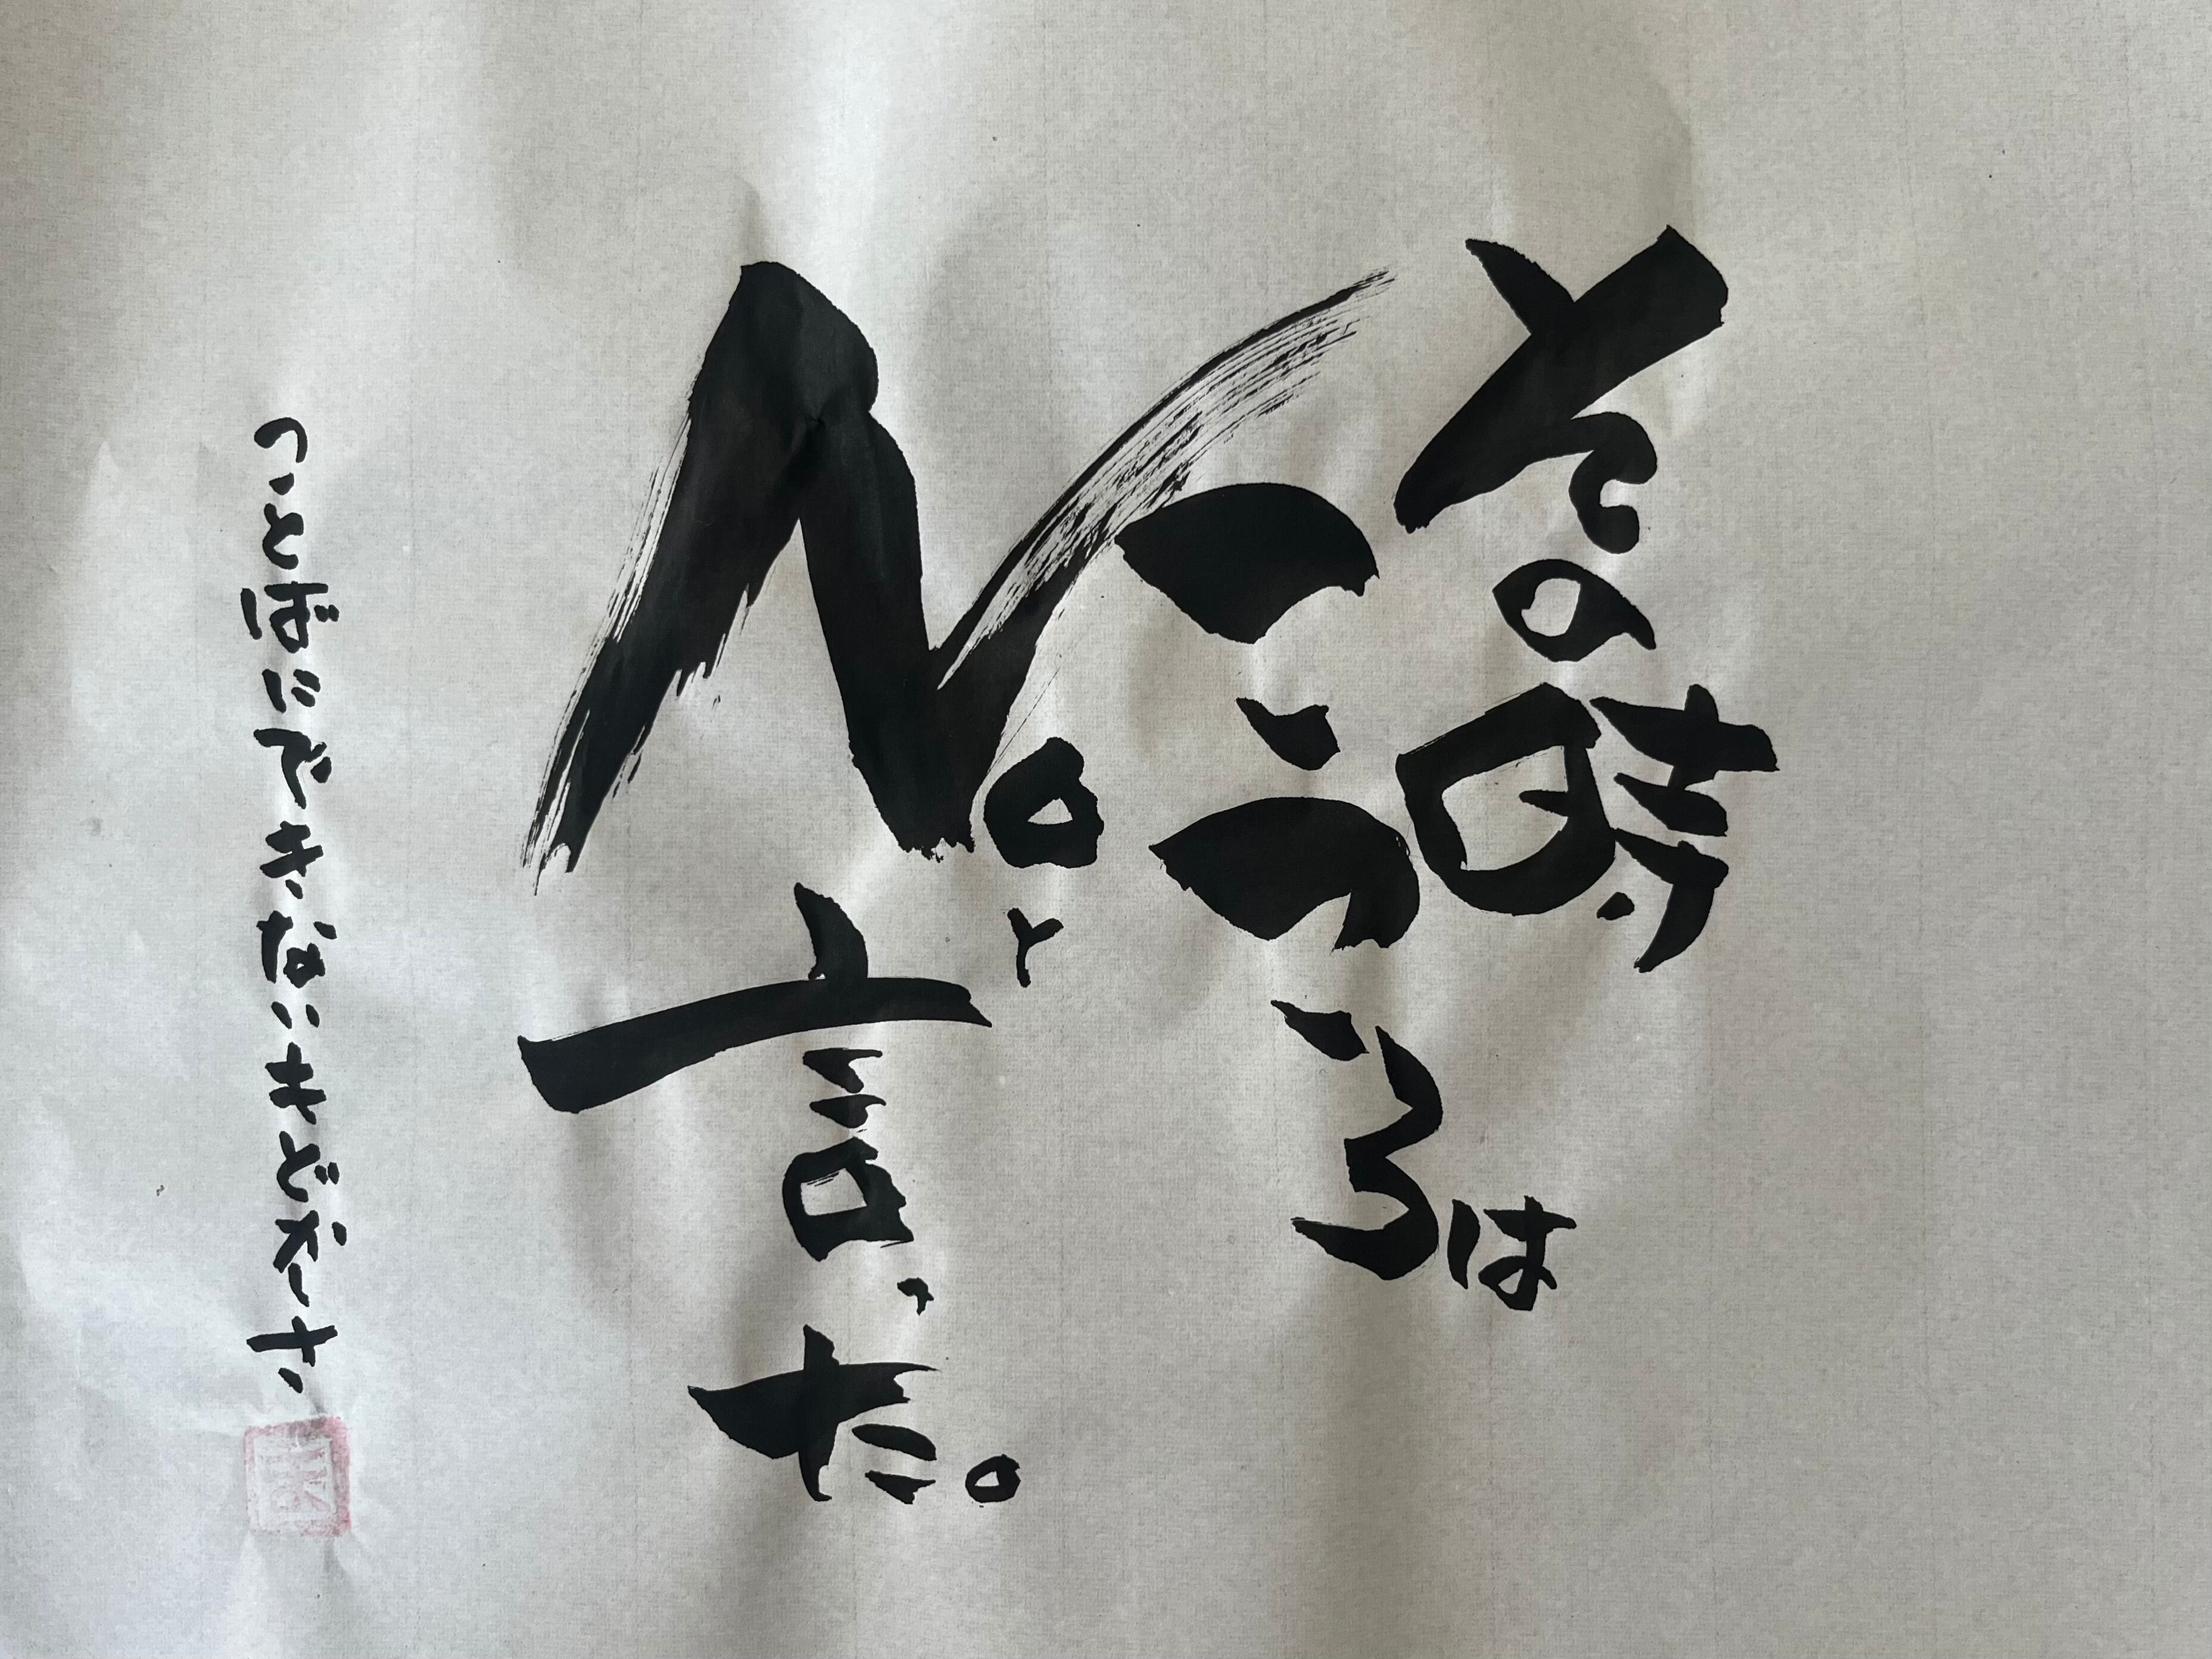 その時
こころは
Noと言った。
ことばにできないけど